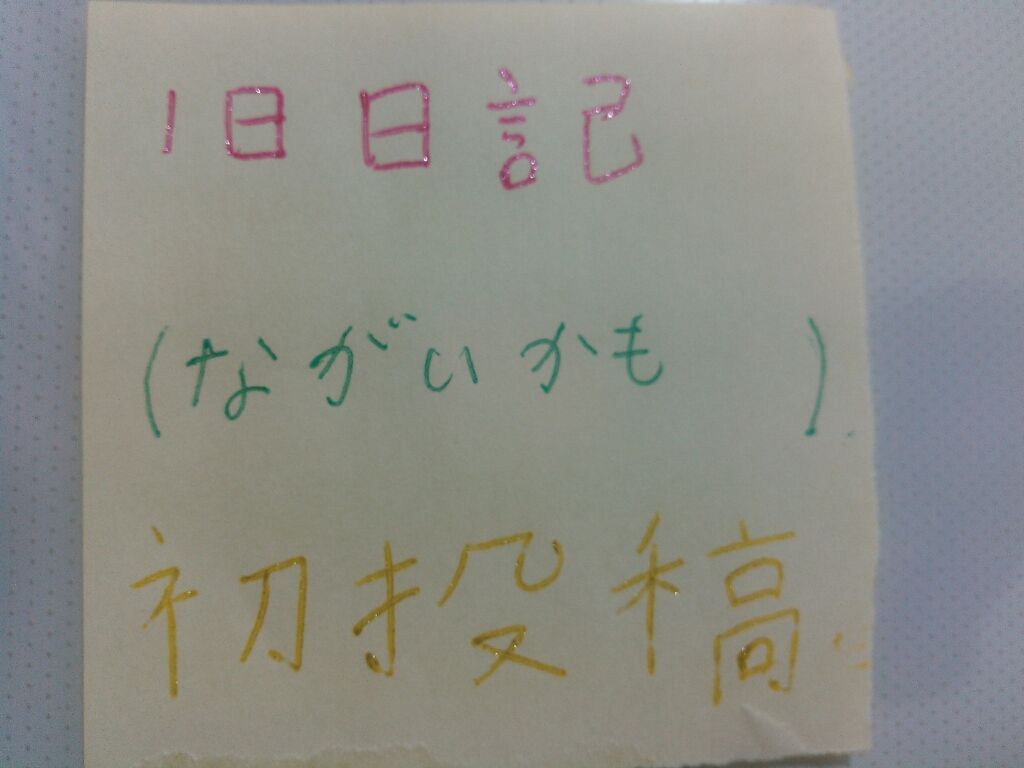 1日日記
(ながいかも )
初投稿